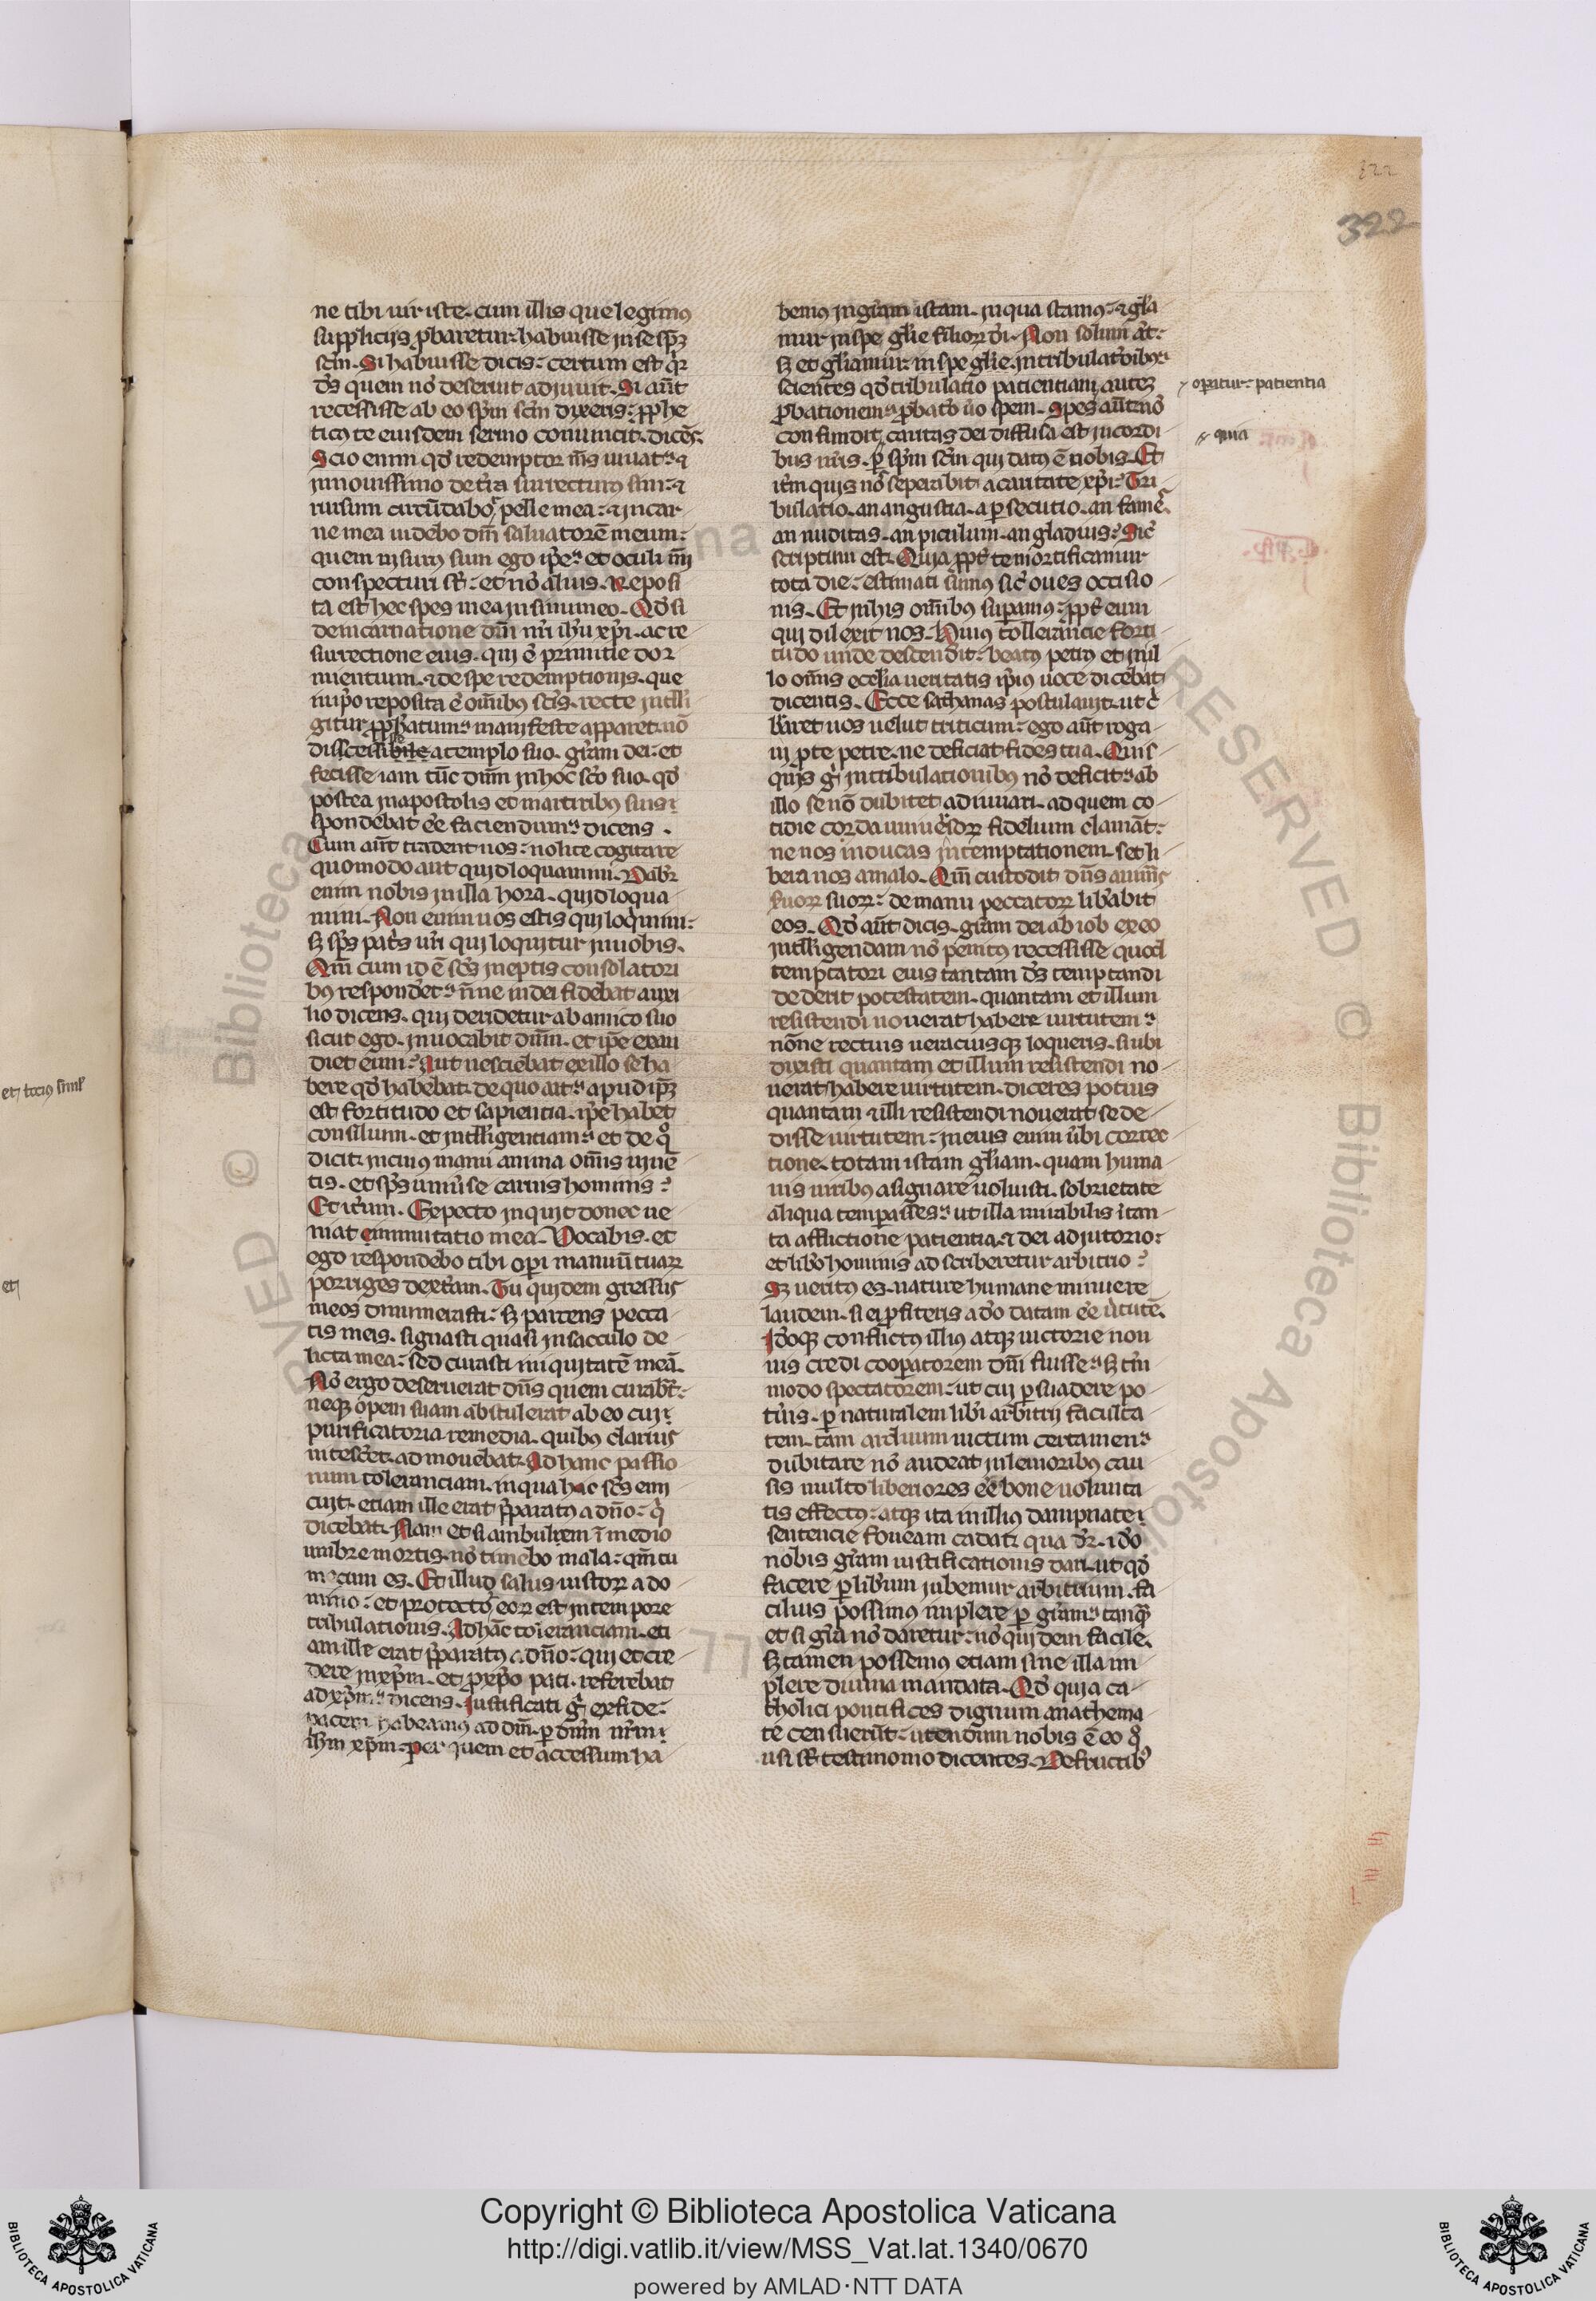 322
322
ne tibi uir iste. cum illis que legimus
supplicijs ꝓbaretur: habuisse in se sp̄m
sc̄m. Si habuisse dicis: certum est qr̄
ds̄ quem nō deseruit adjuuit. Si aūt
recessisse ab eo sp̄m sc̄m dixeris: ꝓphe
ticus te eiusdem sermo conuincit. dicēs.
Scio enim qd̄ redemptor ms̄ uiuat: ⁊
in nouissimo de tr̄a surrecturus sim: ⁊
rursum circūdabor pelle mea: ⁊ in car
ne mea uidebo dm̄ saluatorē meum:
quem uisurus sum ego ip̄e: et oculi mī
conspecturi st̄: et nō alius. Reposi
ta est hec spes mea in sinu meo. Qd̄ si
de incarnatione dn̄i nr̄i ihū xp̄i. ac re
surrectione eius. qui ē primitie dor
mientium. ⁊ de spe redemptionis. que
in ip̄o reposita ē om̄ibus sc̄is. recte intelli
gitur ꝓphatum: manifeste apparet. nō
atemplo suo. gr̄am dei: et
fecisse iam tūc dn̄m in hoc sc̄o suo. qd̄
postea in apostolis et martiribus suis
spondebat eē faciendum: dicens.
Cum aūt tradent uos: nolite cogitare
quomodo aut quid loquamini. Dabit̄
enim uobis in illa hora. quid loqua
mini. Non enim uos estis qui loquimini:
sꝫ sp̄s patris ur̄i qui loquitur in uobis.
Qm̄ cum id ē sc̄s ineptis consolatori
bus respondet: nōne in dei fidebat auxi
lio dicens. qui deridetur ab amico suo
sicut ego. inuocabit dn̄m. et ip̄e exau
diet eum: Aut nesciebat ex illo se ha
bere qd̄ habebat. de quo ait: apud ip̄m
est fortitudo et sapientia. ip̄e habet
consilium. et intelligentiam: et de qͦ
dicit. in cuius manu anima om̄is uiuē
tis. et sp̄s uniūse carnis hominis:
Et itr̄um. Expecto inquit donec ue
niat immutatio mea. Vocabis. et
ego respondebo tibi. operi manuū tuarꝝ
porriges dextr̄am. Tu quidem gressus
meos dinumerasti: sꝫ parcens pecca
tis meis. signasti quasi in sacculo de
licta mea: sed curasti iniquitatē meā.
Nō ergo deseruerat dn̄s quem curabat:
neqꝫ opem suam abstulerat ab eo cui
purificatoria remedia. quibus clarius
nitesceret. admouebat. Ad hanc passio
num tolleranciam. in qua hac sc̄s emi
cuit. etiam ille erat p̄paratus a dn̄o: qi
dicebat. Nam et si ambulem ī medio
umbre mortis. nō timebo mala: qm̄ tu
mecum es. Et illud salus iustorꝝ a do
mino: et protector eorꝝ est in tempore
tribulationis. Ad hāc toleranciam. eti
am ille erat p̄paratus a dn̄o: qui et cre
dere in xp̄m. et ꝓ xp̄o pati. referebat
ad xp̄m: dicens. Iustificati gͦ ex fide:
pacem habeamus ad dm̄. ꝑ dn̄m nr̄m:
ihm̄ xp̄m. per quem et accessum ha
bemus in gr̄am istam. in qua stamus: ⁊ gl̄a
mur in spe gl̄ie filiorꝝ dī. Non solum aūt:
sꝫ et gl̄iamur: in spe gl̄ie. in tribulatōibus:
scientes qd̄ tribulatio patientiam. autem
ꝓbationem: ꝓbatō ūo spem. Spes aūt nō
confundit. caritas dei diffusa est in cordi
bus nr̄is. ꝑ sp̄m sc̄m qui datus ē nobis. Et
itr̄m quis nos seperabit a caritate xp̄i: Tri
bulatio. an angustia. a ꝑsecutio. an famē.
an nuditas. an ꝑiculum. an gladius: Sic̄
scriptum est. Quia ꝓpt̄ te mortificamur
tota die: estimati sumus sic̄ oues occisio
nis. Et in his om̄ibus suꝑamus: ꝓpt̄ eum
qui dilexit nos. Huius tollerancie forti
tudo unde descendit: beatus petrus et in il
lo om̄is ecclesia ueritatis ip̄ius uoce dicebat
dicentis. Ecce sathanas postulauit. ut c̄
baret uos uelut triticum: ego aūt roga
ui ꝓ te petre. ne deficiat fides tua. Quis
quis gͦ in tribulationibus nō deficit: ab
illo se nō dubitet adiuuari. ad quem co
tidie corda uniūsorꝝ fidelium clamāt:
ne nos inducas in temptationem. set li
bera nos a malo. Qm̄ custodit dn̄s animas
suorꝝ: de manu peccatorꝝ lib̄abit
eos. Qd̄ aūt dicis. gr̄am dei ab iob ex eo
intelligendam nō penitus recessisse quod
temptatori eius tantam ds̄ temptandi
dederit potestatem. quantam et illum
resistendi nouerat habere uirtutem:
nōne rectius ueraciusqꝫ loqueris. si ubi
dixisti quantam et illum resistendi no
uerat habere uirtutem. diceres potius
quantam ⁊ illi resistendi nouerat se de
disse uirtutem: in eius enim ūbi correc
tione. totam istam gl̄iam. quam huma
nis uiribus asignare uoluisti. sobrietate
aliqua temperasses: ut illa mirabilis ī tan
ta afflictione patientia. ⁊ dei adjutorio:
et lib̄o hominis adscriberetur arbitrio:
Sꝫ ueritus es. nature humane minuere
laudem. si ei ꝓfiteris a dō datam eē ūtutē.
Idōqꝫ conflictus illius atqꝫ uictorie non
uis credi cooperatorem dm̄ fuisse: sꝫ tm̄
modo spectatorem: ut cui ꝑsuadere po
tueris. ꝑ naturalem lib̄i arbitrij faculta
tem. tam arduum uictum certamen:
dubitare nō audeat in leuioribus cau
sis multo liberiores eē bone uolunta
tis effectus: atqꝫ ita in illius dampnate
sentencie foueam cadat. qua dr̄. idō
nobis gr̄am iustificationis dari. ut qd̄
facere ꝑ lib̄um iubemur arbitrium. fa
cilius possimus implere ꝑ gr̄am: tanqꝫ
et si gr̄a nō daretur: nō quidem facile.
sꝫ tamen possemus etiam sine illa im
plere diuina mandata. Qd̄ quia ca
tholici pontifices dignum anathema
te censuerūt: utendum nobis ē eo qͦ
usi st̄ testimonio dicentes. De fructib;
oꝑatur: patientia
quia
et tocius simlʼ
et